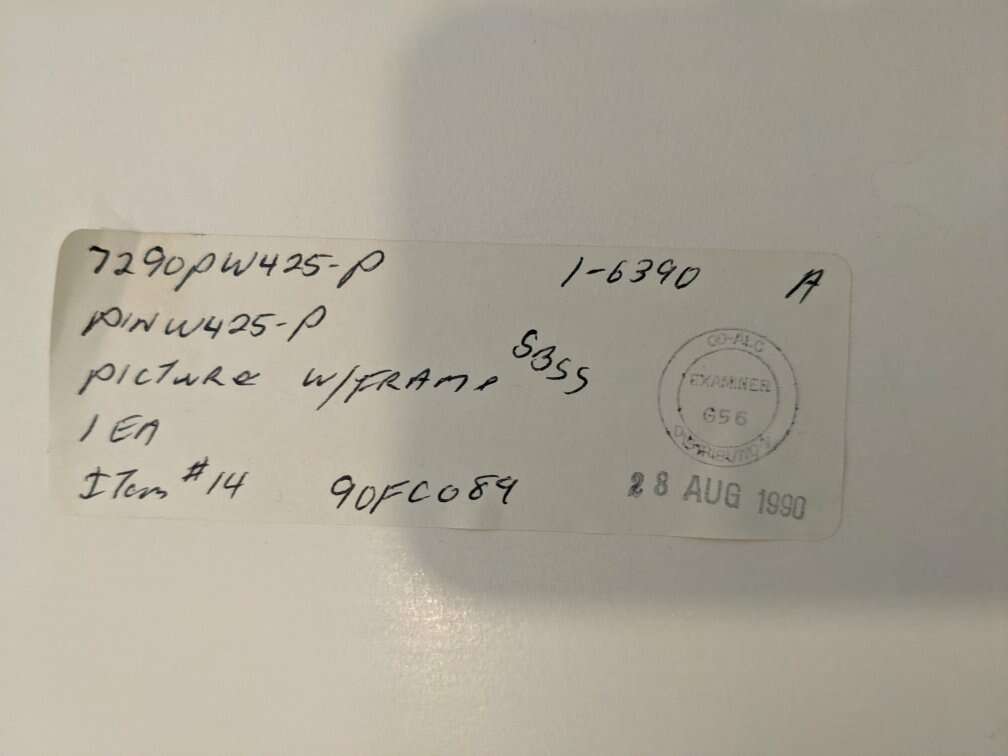 7290PW425-P 1-6390 A
P/NW425-P
PICTURE W/FRAME SBSS
1 EA
ITEM #14 90FC089
OO-ALC
EXAMINER
G56
DISTRIBUTION
28 AUG 1990